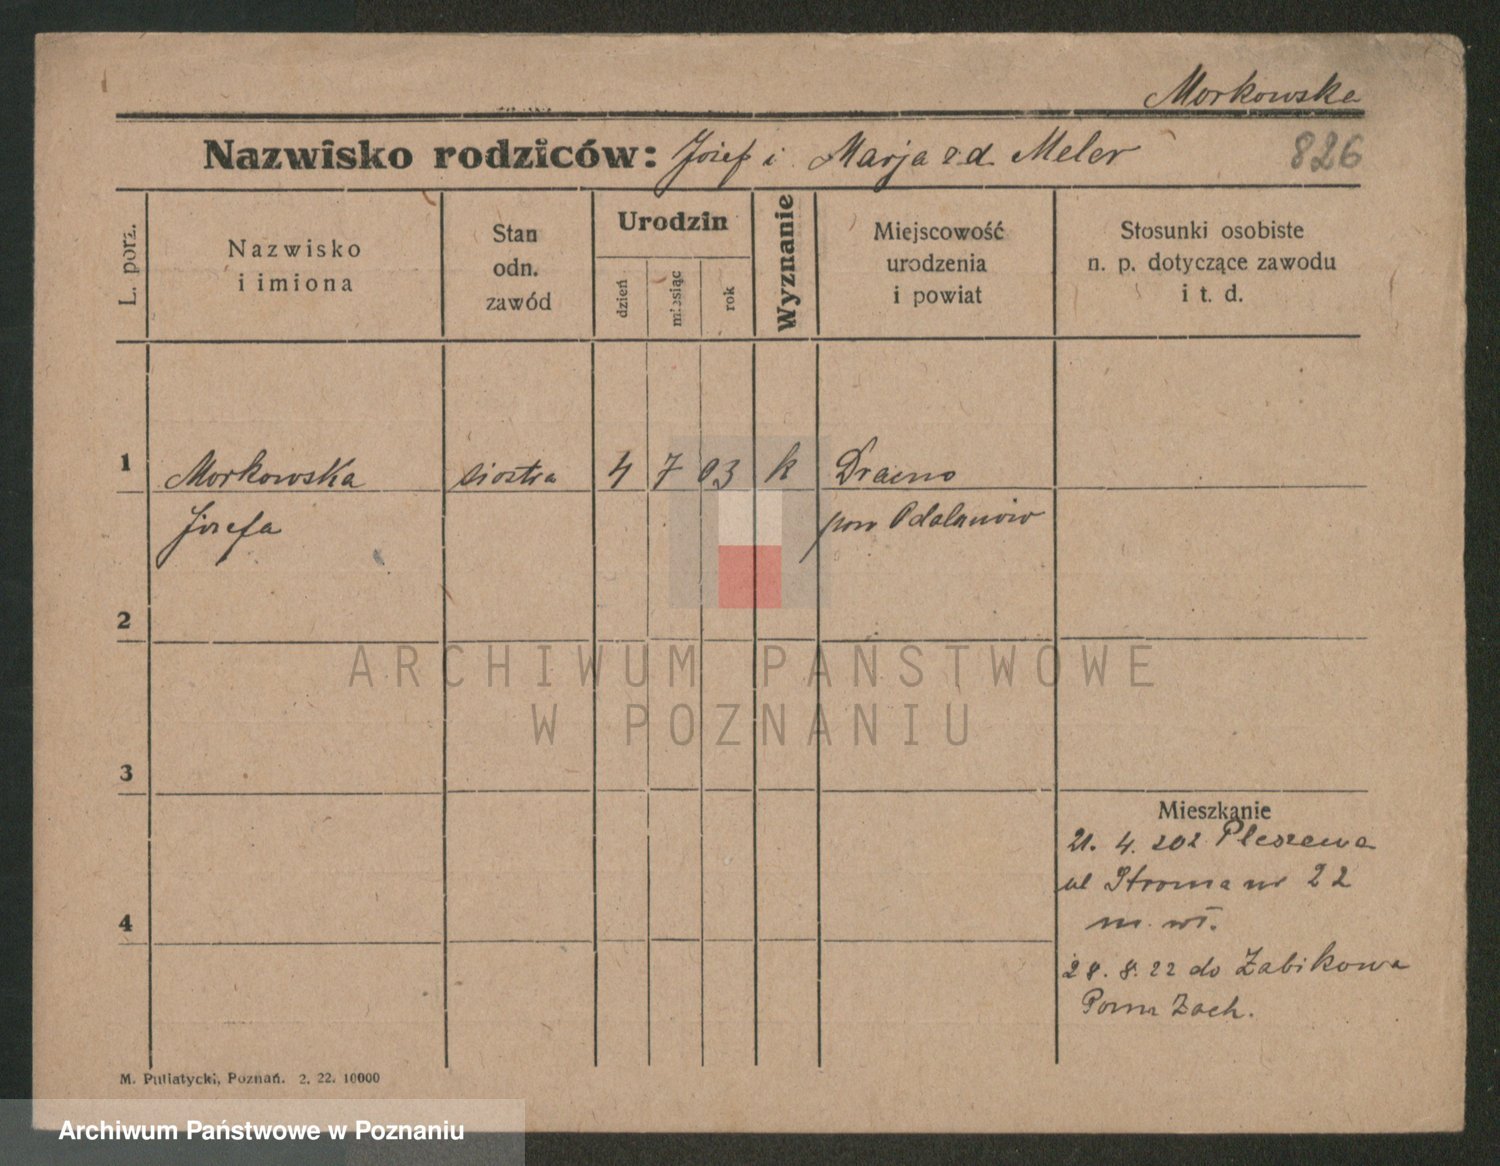 Morkowska
Nazwisko rodziców: Józef i Marja z d. Meler
826
L. porz.
Nazwisko
i imiona
Stan
odn.
zawód
Urodzin
dzień
miesiąc
rok
Wyznanie
Miejscowość
urodzenia
i powiat
Stosunki osobiste
n. p. dotyczące zawodu
i t. d.
1
Morkowska siostra 4 7 03 k
Józefa pow Odolanów
2
3
4
ARCHIWUM PAŃSTWOWE
W POZNANIU
Mieszkanie
21. 4. Pleszewa
ul Stroma nr 22
m. wł.
28. 8. 22 do Żabikowa
Pow Zach.
M. Putiatycki, Poznań. 2. 22. 10000
Archiwum Państwowe w Poznaniu